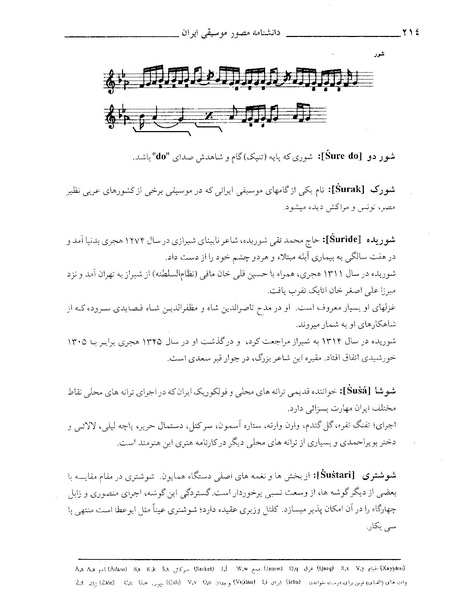 ۲۱٤ دانشنامه مصور موسیقی ایران
شور
شور دو [Šure do]: شوری که پایه (تنیک) گام و شاهدش صدای "do" باشد.
شورک [Šurak]: نام یکی از گامهای موسیقی ایرانی که در موسیقی برخی از کشورهای عربی نظیر
مصر، تونس و مراکش دیده میشود.
شوریده [Šuride]: حاج محمد تقی شوریده، شاعر نابینای شیرازی در سال ۱۲۷۴ هجری بدنیا آمد و
در هفت سالگی به بیماری آبله مبتلاء و هر دو چشم خود را از دست داد.
شوریده در سال ۱۳۱۱ هجری، همراه با حسین قلی خان مافی (نظام‌السلطنه) از شیراز به تهران آمد و نزد
میرزا علی اصغر خان اتابک تقرب یافت.
غزلهای او بسیار معروف است. او در مدح ناصرالدین شاه و مظفرالدین شاه قصایدی سروده که از
شاهکارهای او به شمار میروند.
شوریده در سال ۱۳۱۴ به شیراز مراجعت کرد، و درگذشت او در سال ۱۳۴۵ هجری برابر با ۱۳۰۵
خورشیدی اتفاق افتاد. مقبره این شاعر بزرگ، در جوار قبر سعدی است.
شوشا [Šušâ]: خواننده قدیمی ترانه های محلی و فولکوریک ایران که در اجرای ترانه های محلی نقاط
مختلف ایران مهارت بسزائی دارد.
اجرای: تفنگ نقره، گل گندم، وارن وارته، ستاره آسمون، سرکتل، دستمال حریر، پاچه لیلی، لالائی و
دختر بویراحمدی و بسیاری از ترانه های محلی دیگر در کارنامه هنری این هنرمند است.
شوشتری [Šuštari]: از بخش ها و نغمه های اصلی دستگاه همایون. شوشتری در مقام مقایسه با
بعضی از دیگر گوشه ها، از وسعت نسبی برخوردار است. گستردگی این گوشه، اجرای منصوری و زابل
چهارگاه را در آن امکان پذیر میسازد. کلنل وزیری عقیده دارد: شوشتری عیناً مثل ابوعطا است منتهی با
سی بکار.